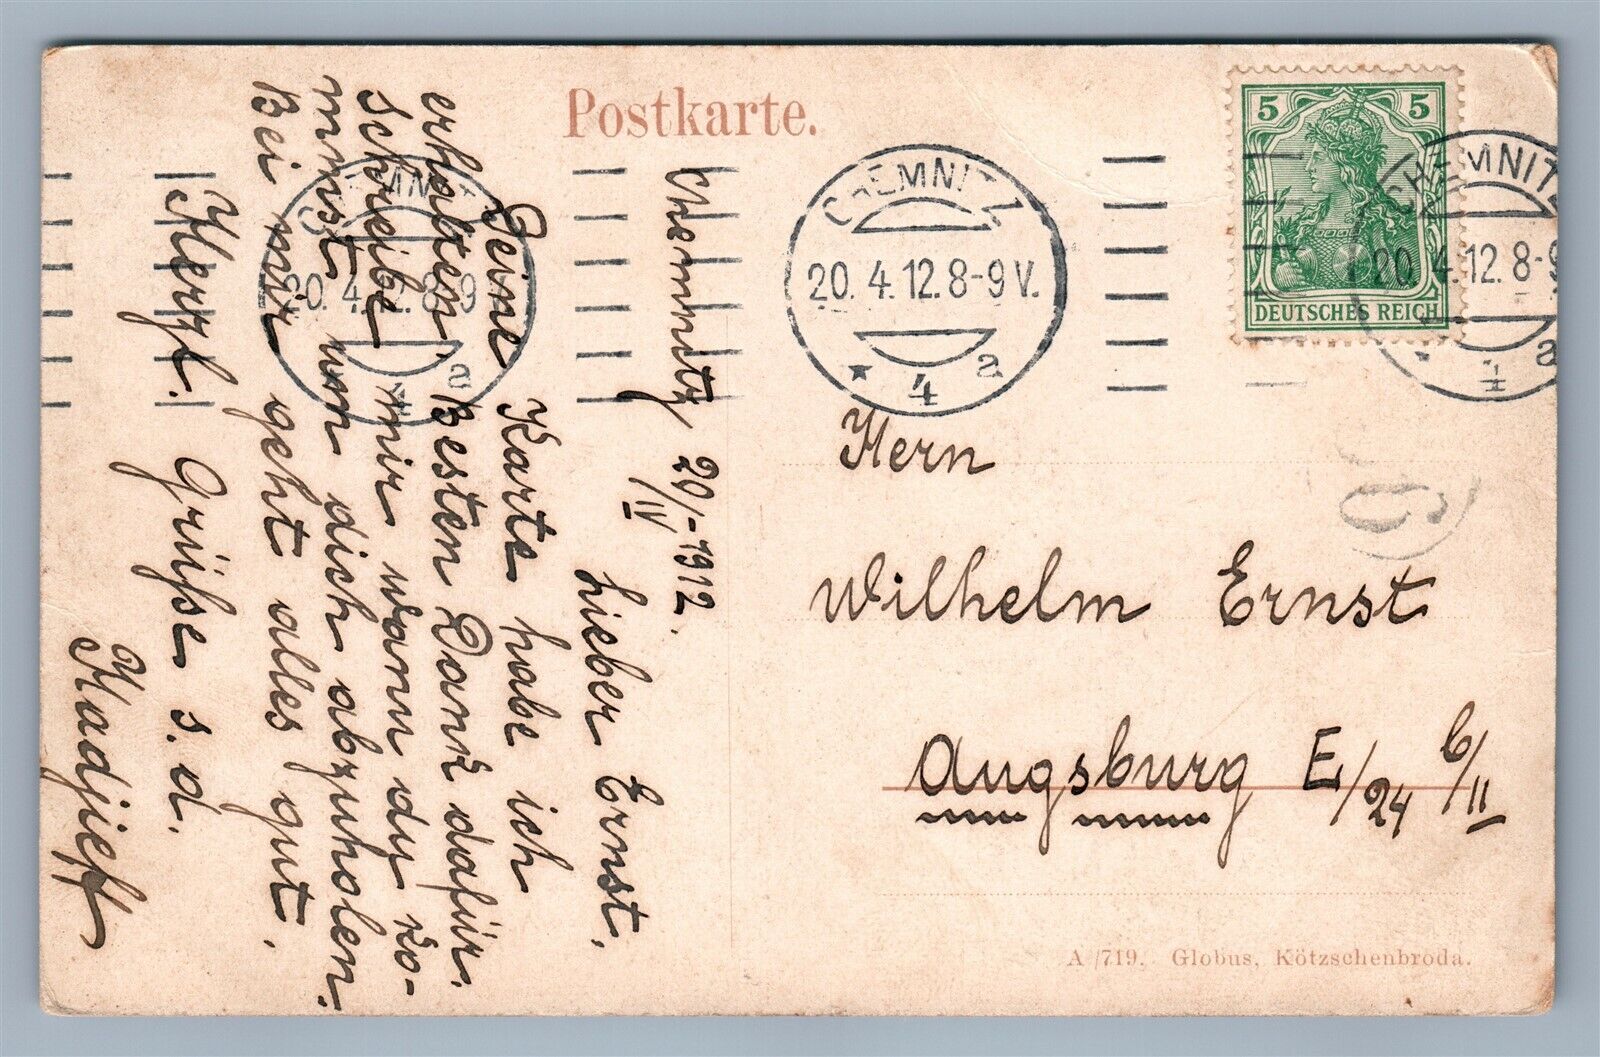 Postkarte.
5 5
DEUTSCHES REICH
CHEMNITZ
20. 4. 12. 8-9 V.
* 4 a
CHEMNITZ
20. 4. 12. 8-9
* 4 a
CHEMNITZ
20. 4. 12. 8-9
4 a
Chemnitz 20/IV - 1912.
Lieber Ernst.
Deine Karte habe ich
erhalten, Besten Dank dafür.
Schreibe mir wann du ko-
mmst um dich abzuholen.
Bei mir geht alles gut.
Herzl. Grüsse s. d.
Hadjieff
Hern
Wilhelm Ernst
Augsburg E/24 6/II
9
A /719. Globus, Kötzschenbroda.